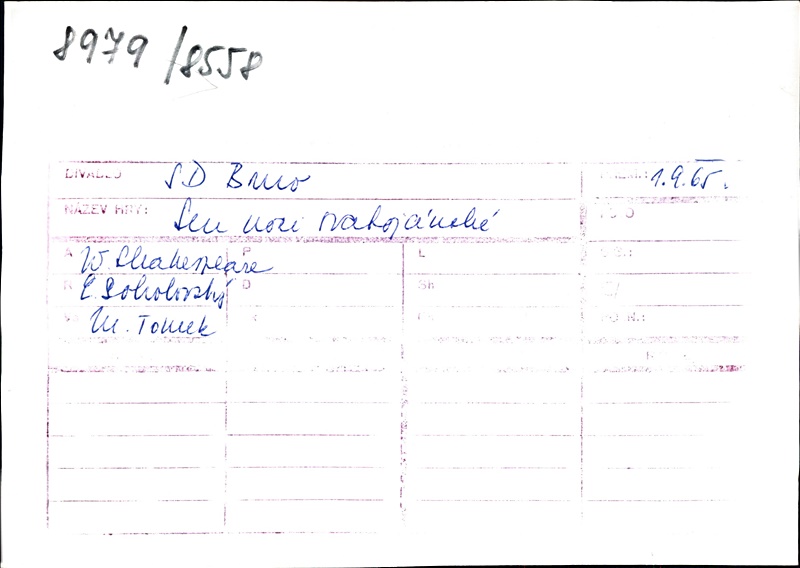 8979/8558
DIVADLO SD Brno 1.9.65.
NÁZEV HRY: Sen noci svatojánské
A W. Shakespeare P L
E. Sokolovský D Sk
M. Tomek